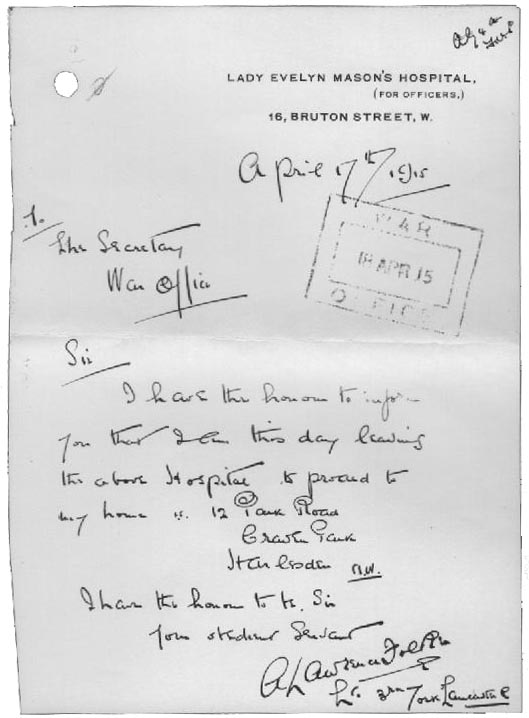 LADY EVELYN MASON'S HOSPITAL,
(FOR OFFICERS,)
16, BRUTON STREET, W.
April 17th/1915
To
The Secretary
War Office
WAR
18 APR 15
OFFICE
Sir
I have the honour to inform
you that I am this day leaving
the above Hospital to proceed to
my home 12 Park Road
Craven Park
Harlesden N.W.
I have the honour to be. Sir
Your obedient Servant
A Lawrence
Lt. 3rd York Lancaster